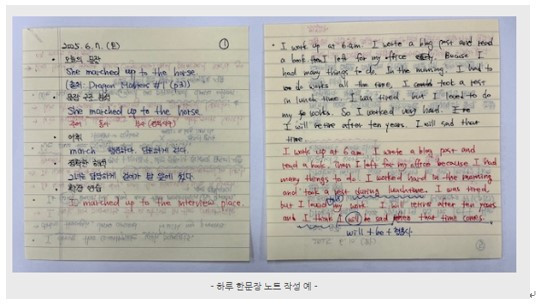 2025. 6. 7. (토) ①
• 오늘의 문장
She marched up to the horse
(출처: Dragon Masters #1 (p.21))
• 문장 구조 분석
She marched up to the horse
주어 동사
• 어휘
march 행진하다, 당당하게 걷다
• 정확한 해석
• 확장 연습
I marched up to the interview place.
• I wook up at 6 am. I wrote a blog post and read
a book I left for my office Because I
had many things to do. In the morning. I had to
do works all the time, I took a rest
in lunch time. I was tired but I had to do
my works. So I worked very hard.
I will retire after ten years. I will sad that
time.
I woke up at 6 am. I wrote a blog post and
read a book. Then I left for my office because I had
many things to do. I worked hard in the morning
and took a rest during lunchtime. I was tired,
but I my work. I will retire after ten years
and I think I will be sad when that time comes.
will + be +
②
- 하루 한문장 노트 작성 예 -